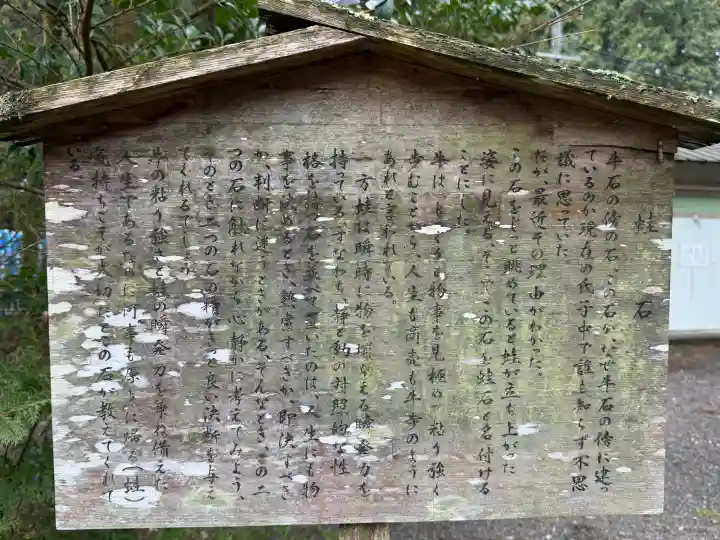 蛙石
牛石の傍の石、この石がなぜ牛石の傍に建っ
ているのか現在の氏子中で誰も知らず不思
議に思っていた。
だが最近その理由がわかった。
この石をじっと眺めていると蛙が立ち上がった
姿に見える。そこでこの石を蛙石と名付ける
ことにした。
牛はじっくり物事を見極め、粘り強く
歩むことから、人生も商売も牛歩のように
あれと云われている。
一方蛙は瞬時に物を捉える瞬発力を
持っている。すなわち、静と動の対照的な性
格を持つ石を並べて置いたのは、人生にも物
事を決めるとき、熟慮すべきか、即決すべき
か、判断に迷うときがある、そんなとき、この二
つの石に触れながら心静かに考えてみよう、
そのとき二つの石の精がきっと良い決断を与え
てくれるでしょう
牛の粘り強さと蛙の瞬発力を兼ね備えた
人生でありたい 何事も原点に帰る(蛙)
気持ちこそが大切だとこの石が教えてくれて
いる